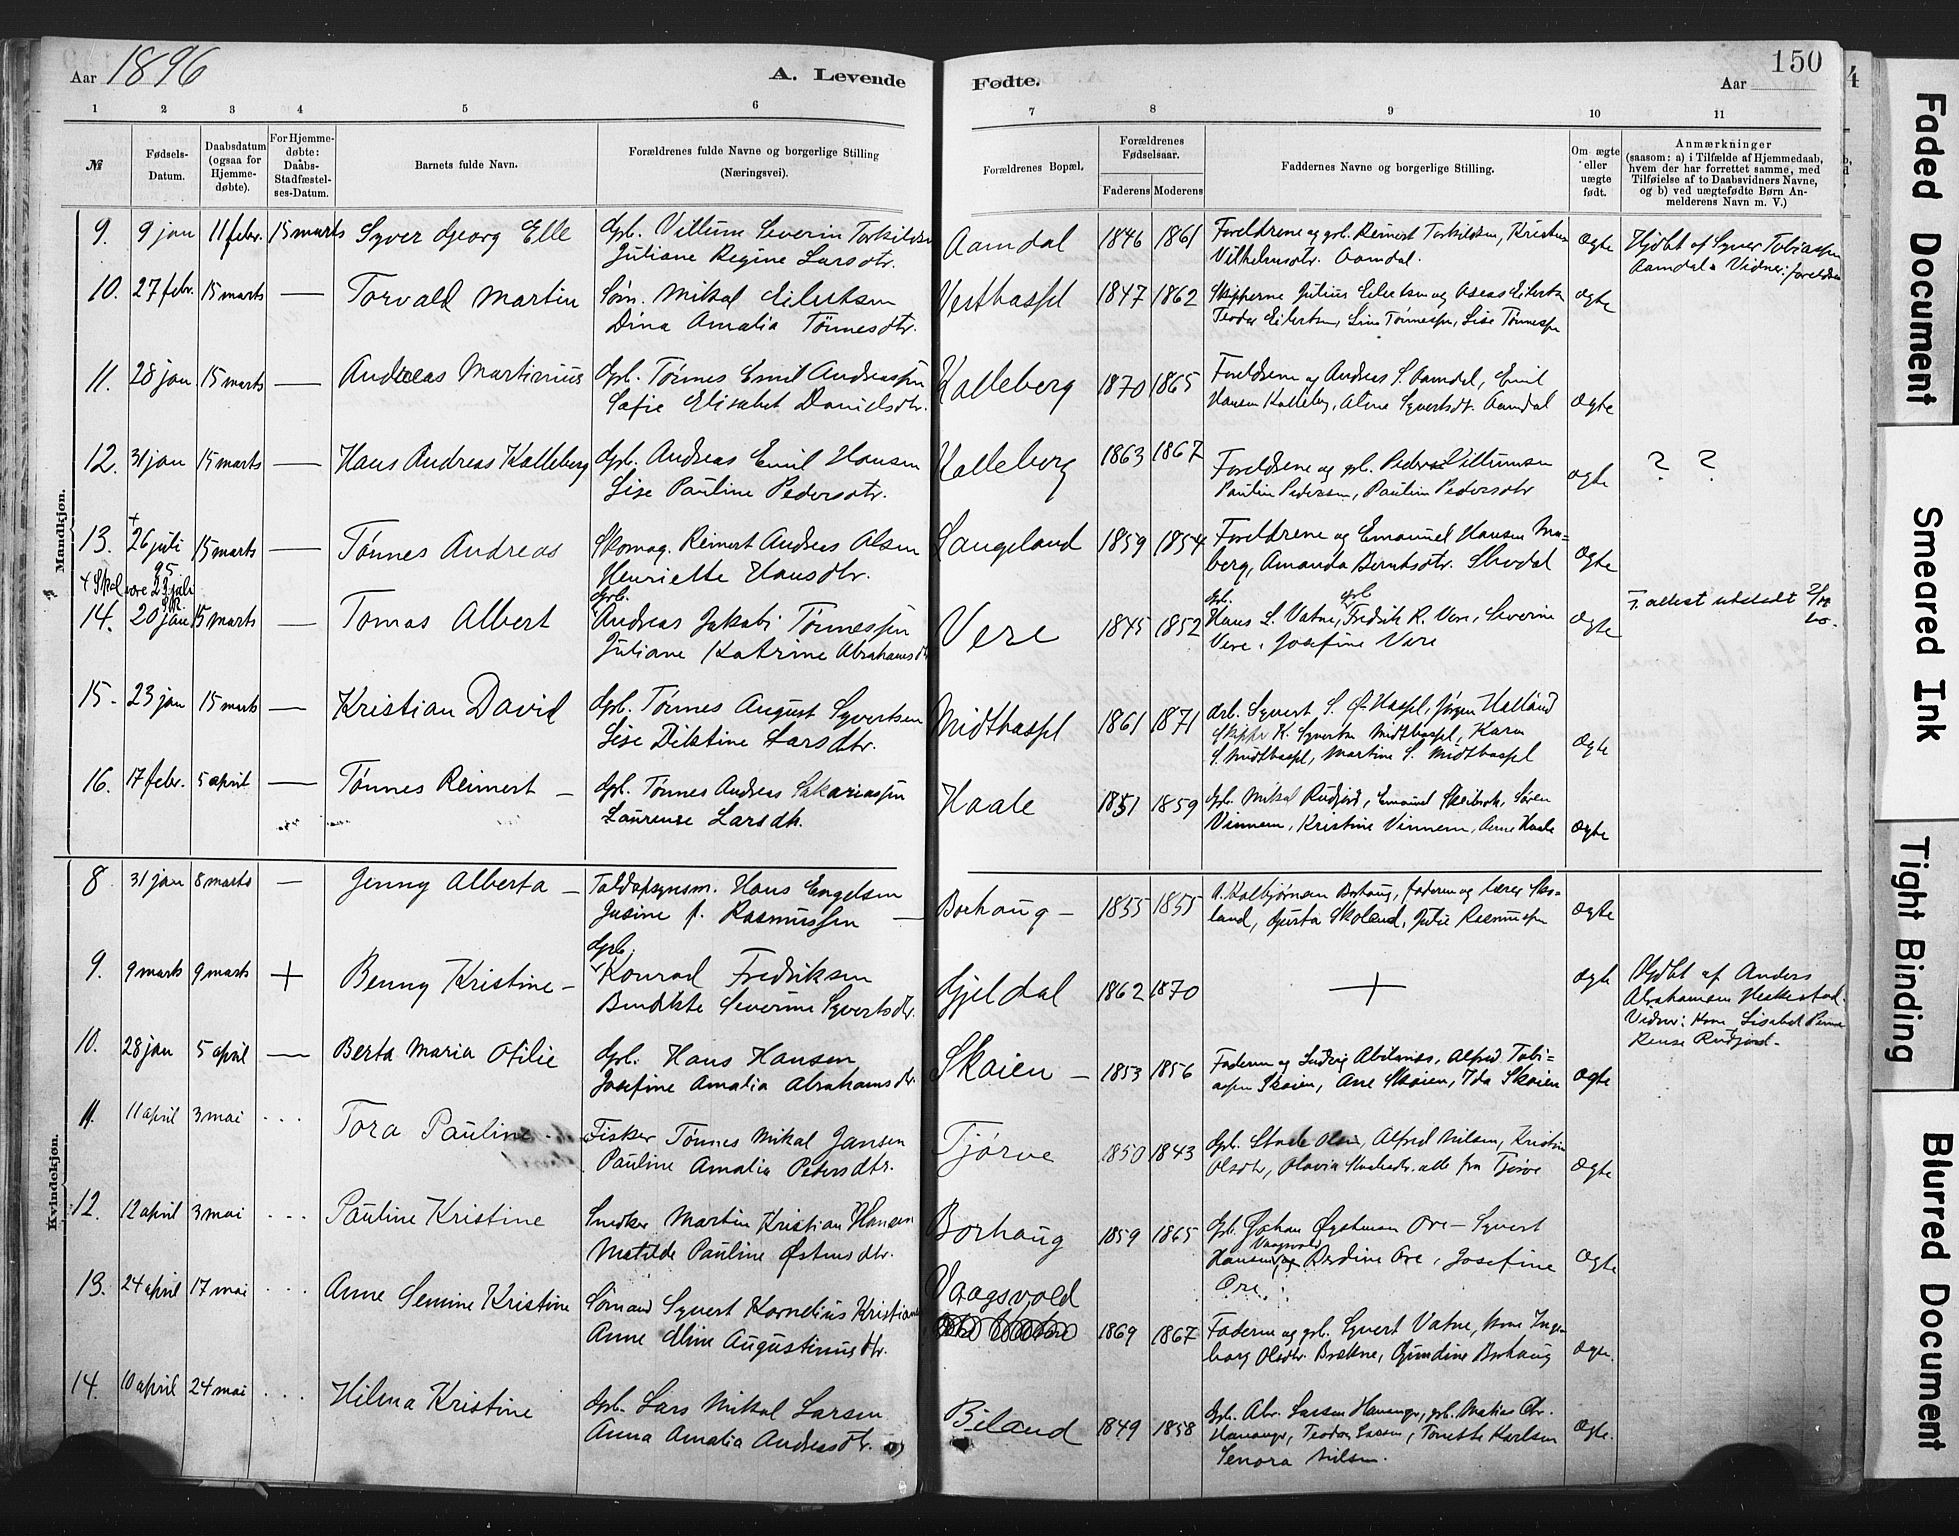 Aar 1896
A. Levende
Fødte.
150
Aar
4
1 2 3 4 5 6 7 8 9 10 11
№
Fødsels-
Datum.
Daabsdatum
(ogsaa for
Hjemme-
døbte).
For Hjemme-
døbte:
Daabs-
Stadfæstel-
ses-Datum.
Barnets fulde Navn.
Forældrenes fulde Navne og borgerlige Stilling
(Næringsvei).
Forældrenes Bopæl.
Forældrenes
Fødselsaar.
Faderens Moderens
Faddernes Navne og borgerlige Stilling.
Om ægte
eller
uægte
født.
Anmærkninger
(saasom: a) i Tilfælde af Hjemmedaab,
hvem der har forrettet samme, med
Tilføielse af to Daabsvidners Navne,
og b) ved uægtefødte Børn An-
melderens Navn m. V.)
Mandkjøn.
9. 9 jan 11 febr. 15 marts Syver Georg Elle Gbl. Villum Severin Torkildsen
Juliane Regine Larsdtr.
Aamdal 1846 1861 Foreldrene og gbl. Reinert Torkildsen, Kristine
Vilhelmsdtr. Aamdal.
ægte
Hjdbt af Syver Tobiassen
Aamdal Vidner: foreldrene
10. 27 febr. 15 marts — Torvald Martin Søm. Mikal Eilertsen
Dina Amalia Tønnesdtr.
Vesthassel 1847 1862 Skipperne Julius Eilertsen og Aseas Eilertsen
Teodor Eilertsen, Lina Tønnessen, Lise Tønnessen
ægte
11. 28 jan 15 marts — Andreas Martinius Gbl. Tønnes Emil Andreassen
Sofie Elisabet Danielsdtr.
Kalleberg 1870 1865 Foreldrene og Andreas S. Aamdal, Emil
Hansen Kalleberg, Aline Syvertsdt. Aamdal
ægte
12. 31 jan 15 marts — Hans Andreas Kalleberg Gbl. Andreas Emil Hansen
Lise Pauline Pedersdtr.
Kalleberg 1863 1867 Foreldrene og gbl. Peder Villumsen
Paulin Pedersen, Pauline Pedersdtr
ægte ? ?
13. + 26 juli 95 15 marts — Tønnes Andreas Skomag. Reinert Andreas Olsen
Henriette Hansdtr.
Langeland 1859 1854 Foreldrene og Emanuel Hansen Ma-
berg, Amanda Berntsdtr. Skodal
ægte
+ Skal være 23 juli
14. 20 jan 15 marts — Tomas Albert Gbl.
Andreas Jakobi Tønnessen
Juliane Katrine Abrahamsdtr
Vere 1845 1852 gbl. gbl
Hans L. Vatne, Fredrik R. Vere, Severine
Vere, Josefine Vere
ægte
F. attest utstedt
15. 23 jan 15 marts — Kristian David Gbl. Tønnes August Syvertsen
Lise Dilstine Larsdtr.
Midthassel 1861 1871 arb. Syvert S. Ø. Hassel, Jørgen Halland
Skipper K. Syvertsen Midthassel, Karen
S. Midthassel, Martine S. Midthassel
ægte
16. 17 febr. 5 april — Tønnes Reinert — Gbl. Tønnes Andreas Sakariassen
Laurense Larsdtr.
Haale 1851 1859 Gbl. Mikal Rudjord, Emanuel Skeibrok, Søren
Vinnem, Kristine Vinnem, Anne Haale
ægte
Kvindekjøn.
8 31 jan 8 marts — Jenny Alberta — Toldopsynsm. Hans Engelsen
Jusine f. Rasmussen —
Borhaug — 1855 1855 A. Kolbjørnsen Borhaug, faderen og lærer Sko-
land, Gjurta Skoland, Julie Rasmussen
ægte
9. 9 marts 9 marts + Benny Kristine — Gbl.
Konrad Fredriksen
Bendikte Severine Syvertsdtr.
Gjeldal 1862 1870 + ægte
Hjdbt af Anders
Abrahamsen Heskestad.
Vidner: Kone Lisabet
Rudjord.
10. 28 jan 5 april — Berta Maria Otilie Gbl. Hans Hansen
Josefine Amalia Abrahamsdtr
Skoien — 1853 1856 Faderen og Ludvig Abelsnes, Alfred Tobi=
assen Skoien, Ane Skoien, Ida Skoien
ægte
11. 11 april 3 mai ... Tora Pauline Fisker Tønnes Mikal Jansen
Pauline Amalia Petersdtr.
Tjørve 1850 1843 Gbl. Stale Olsen, Alfred Nilsen, Kristine
Olsdtr, Olovia alle fra Tjørve
ægte
12. 12 april 3 mai ... Pauline Kristine Snedker Martin Kristian Hansen
Matilde Pauline Østensdtr.
Borhaug 1859 1865 Gbl. Johan Øystensen Ore — Syvert
Hansen Vaagsvold, og Berdine Ore, Josefine
Ore.
ægte
13. 24 april 17 mai ... Anne Semine Kristine Sømand Syvert Kornelius Kristians
Anne Eline Augustinusdtr.
Vaagsvold
1869 1867 Faderen og gbl. Syvert Vatne, kone Inge-
borg Olsdtr. Brekne, Gundine Borhaug
ægte.
14. 10 april 24 mai ... Hilma Kristine Gbl. Lars Mikal Larsen
Anna Amalia Andreasdtr.
Biland 1849 1858 Gbl. Abr. Larsen Hananger, gbl. Matias Chr.
Hananger, Teodor Larsen, Tonette Karlsen
Senora Nilsen.
ægte.
Faded Document
Smeared Ink
Tight Binding
Blurred Document